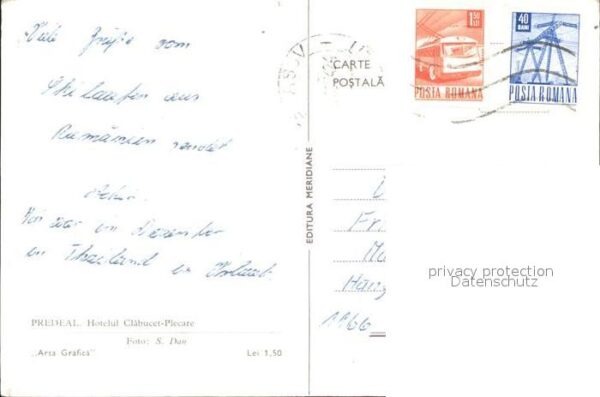 Viele Grüße vom
Skilaufen aus
Rumänien sendet
Achim
Wir war im Dezember
in Thailand in Urlaub.
PREDEAL. Hotelul Clăbucet-Plecare
Foto: S. Dan
„Arta Grafică" Lei 1,50
EDITURA MERIDIANE
CARTE
POȘTALĂ
1,50
LEI
POSTA ROMANA
40
BANI
POSTA ROMANA
Fr.
privacy protection
Datenschutz